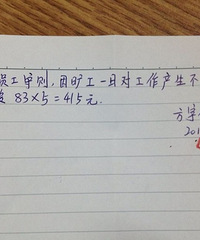 员工守则，因旷工一日对工作产生不
83×5=415元.
方字
201